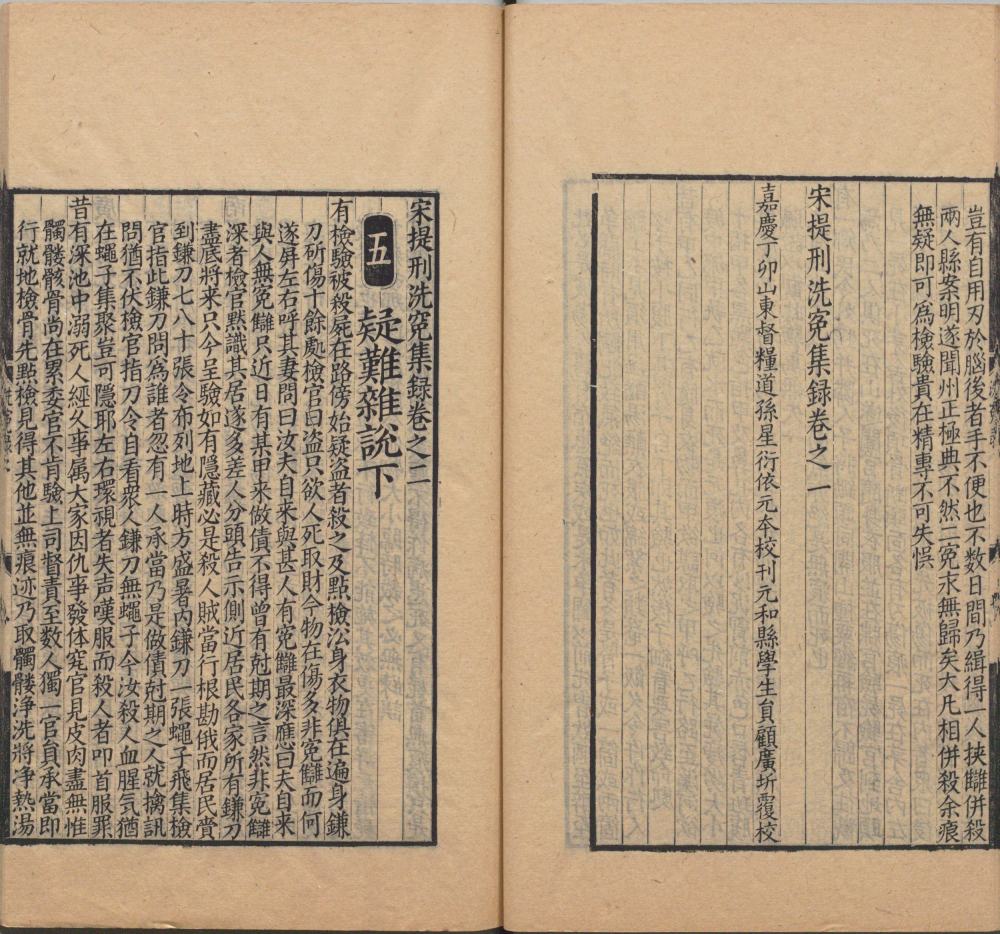 豈有自用刃於腦後者手不便也不数日間乃緝得一人挾讎併殺
兩人縣案明遂聞州正極典不然二冤永無歸矣大凡相併殺余痕
無疑即可為檢驗貴在精專不可失悞
宋提刑洗冤集録卷之一
嘉慶丁卯山東督糧道孫星衍依元本校刊元和縣學生員顧廣圻覆校
宋提刑洗冤集録卷之二
五 疑難雜說下
有檢驗被殺屍在路傍始疑盗者殺之及點檢沿身衣物俱在遍身鎌
刀斫傷十餘處檢官曰盗只欲人死取財今物在傷多非冤讎而何
遂屏左右呼其妻問曰汝夫自來與甚人有冤讎最深應曰夫自来
與人無冤讎只近日有某甲来做債不得曽有尅期之言然非冤讎
深者檢官黙識其居遂多差人分頭告示側近居民各家所有鎌刀
盡底將来只今呈驗如有隱藏必是殺人賊當行根勘俄而居民賫
到鎌刀七八十張令布列地上時方盛暑内鎌刀一張蠅子飛集檢
官指此鎌刀問爲誰者忽有一人承當乃是做債尅期之人就擒訊
問猶不伏檢官指刀令自看衆人鎌刀無蠅子今汝殺人血腥氣猶
在蠅子集聚豈可隱耶左右環視者失声嘆服而殺人者叩首服罪
昔有深池中溺死人經久事属大家因仇事發体究官見皮肉盡無惟
髑髏骸骨尚在累委官不肯驗上司督責至数人獨一官員承當即
行就地檢骨先點檢見得其他並無痕迹乃取髑髏浄洗將净熱湯